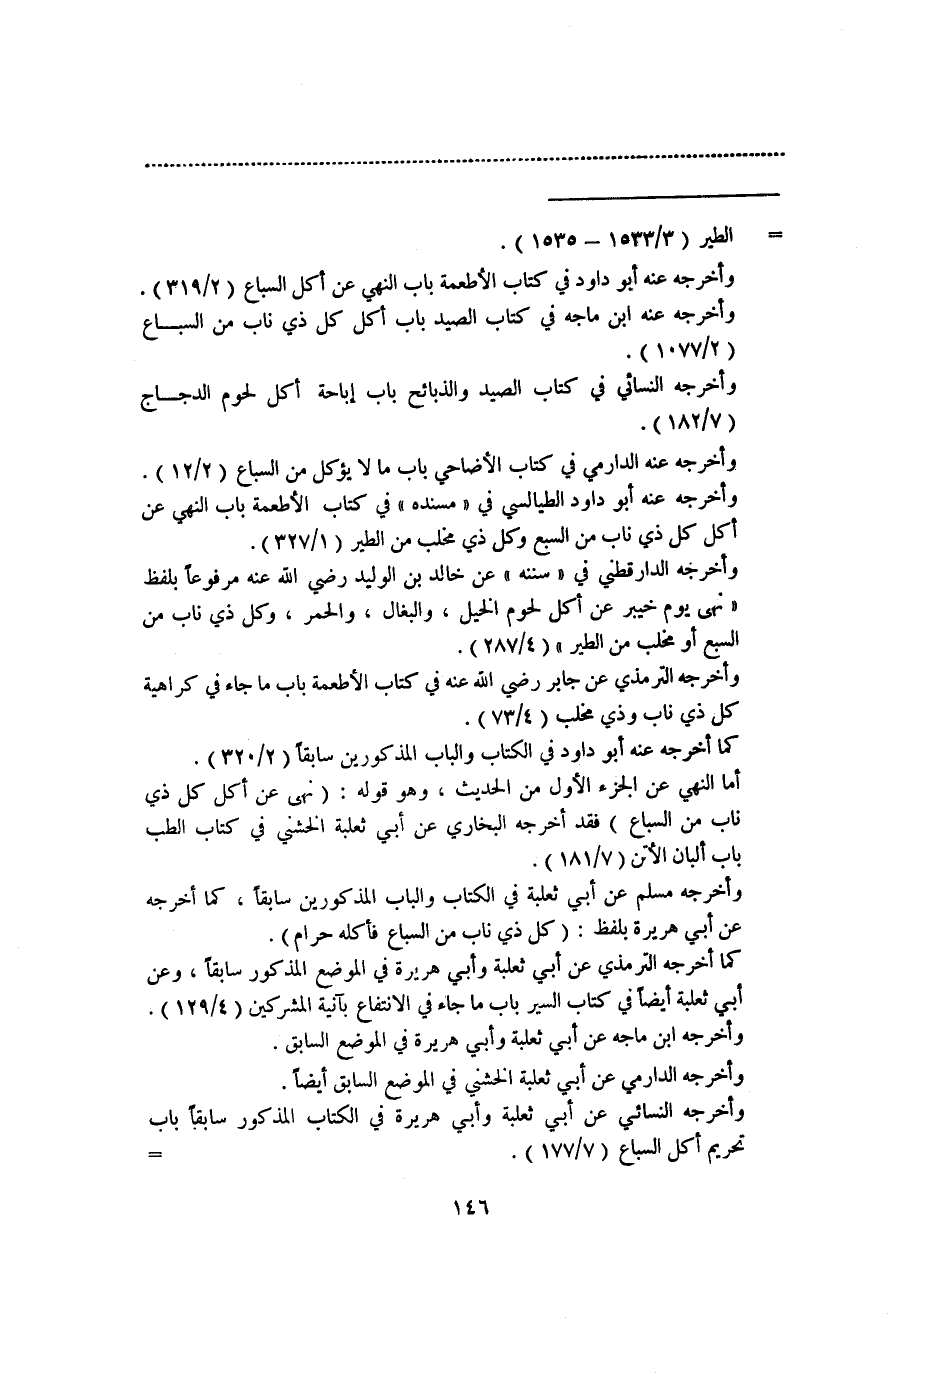 = الطير ( ١٥٣٣/٣ – ١٥٣٥ ) .
وأخرجه عنه أبو داود في كتاب الأطعمة باب النهي عن أكل السباع ( ٣١٩/٢ ) .
وأخرجه عنه ابن ماجه في كتاب الصيد باب أكل كل ذي ناب من السبـــاع
( ١٠٧٧/٢ ) .
وأخرجه النسائي في كتاب الصيد والذبائح باب إباحة أكل لحوم الدجـــاج
( ١٨٢/٧ ) .
وأخرجه عنه الدارمي في كتاب الأضاحي باب ما لا يؤكل من السباع ( ١٢/٢ ) .
وأخرجه عنه أبو داود الطيالسي في « مسنده » في كتاب الأطعمة باب النهي عن
أكل كل ذي ناب من السبع وكل ذي مخلب من الطير ( ٣٢٧/١ ) .
وأخرجه الدارقطني في « سننه » عن خالد بن الوليد رضي الله عنه مرفوعاً بلفظ
« نهى يوم خيبر عن أكل لحوم الخيل ، والبغال ، والحمر ، وكل ذي ناب من
السبع أو مخلب من الطير » ( ٢٨٧/٤ ) .
وأخرجه الترمذي عن جابر رضي الله عنه في كتاب الأطعمة باب ما جاء في كراهية
كل ذي ناب وذي مخلب ( ٧٣/٤ ) .
كما أخرجه عنه أبو داود في الكتاب والباب المذكورين سابقاً ( ٣٢٠/٢ ) .
أما النهي عن الجزء الأول من الحديث ، وهو قوله : ( نهى عن أكل كل ذي
ناب من السباع ) فقد أخرجه البخاري عن أبي ثعلبة الخشني في كتاب الطب
باب ألبان الأتن ( ١٨١/٧ ) .
وأخرجه مسلم عن أبي ثعلبة في الكتاب والباب المذكورين سابقاً ، كما أخرجه
عن أبي هريرة بلفظ : ( كل ذي ناب من السباع فأكله حرام ) .
كما أخرجه الترمذي عن أبي ثعلبة وأبي هريرة في الموضع المذكور سابقاً ، وعن
أبي ثعلبة أيضاً في كتاب السير باب ما جاء في الانتفاع بآنية المشركين ( ١٢٩/٤ ) .
وأخرجه ابن ماجه عن أبي ثعلبة وأبي هريرة في الموضع السابق .
وأخرجه الدارمي عن أبي ثعلبة الخشني في الموضع السابق أيضاً .
وأخرجه النسائي عن أبي ثعلبة وأبي هريرة في الكتاب المذكور سابقاً باب
تحريم أكل السباع ( ١٧٧/٧ ) . =
١٤٦